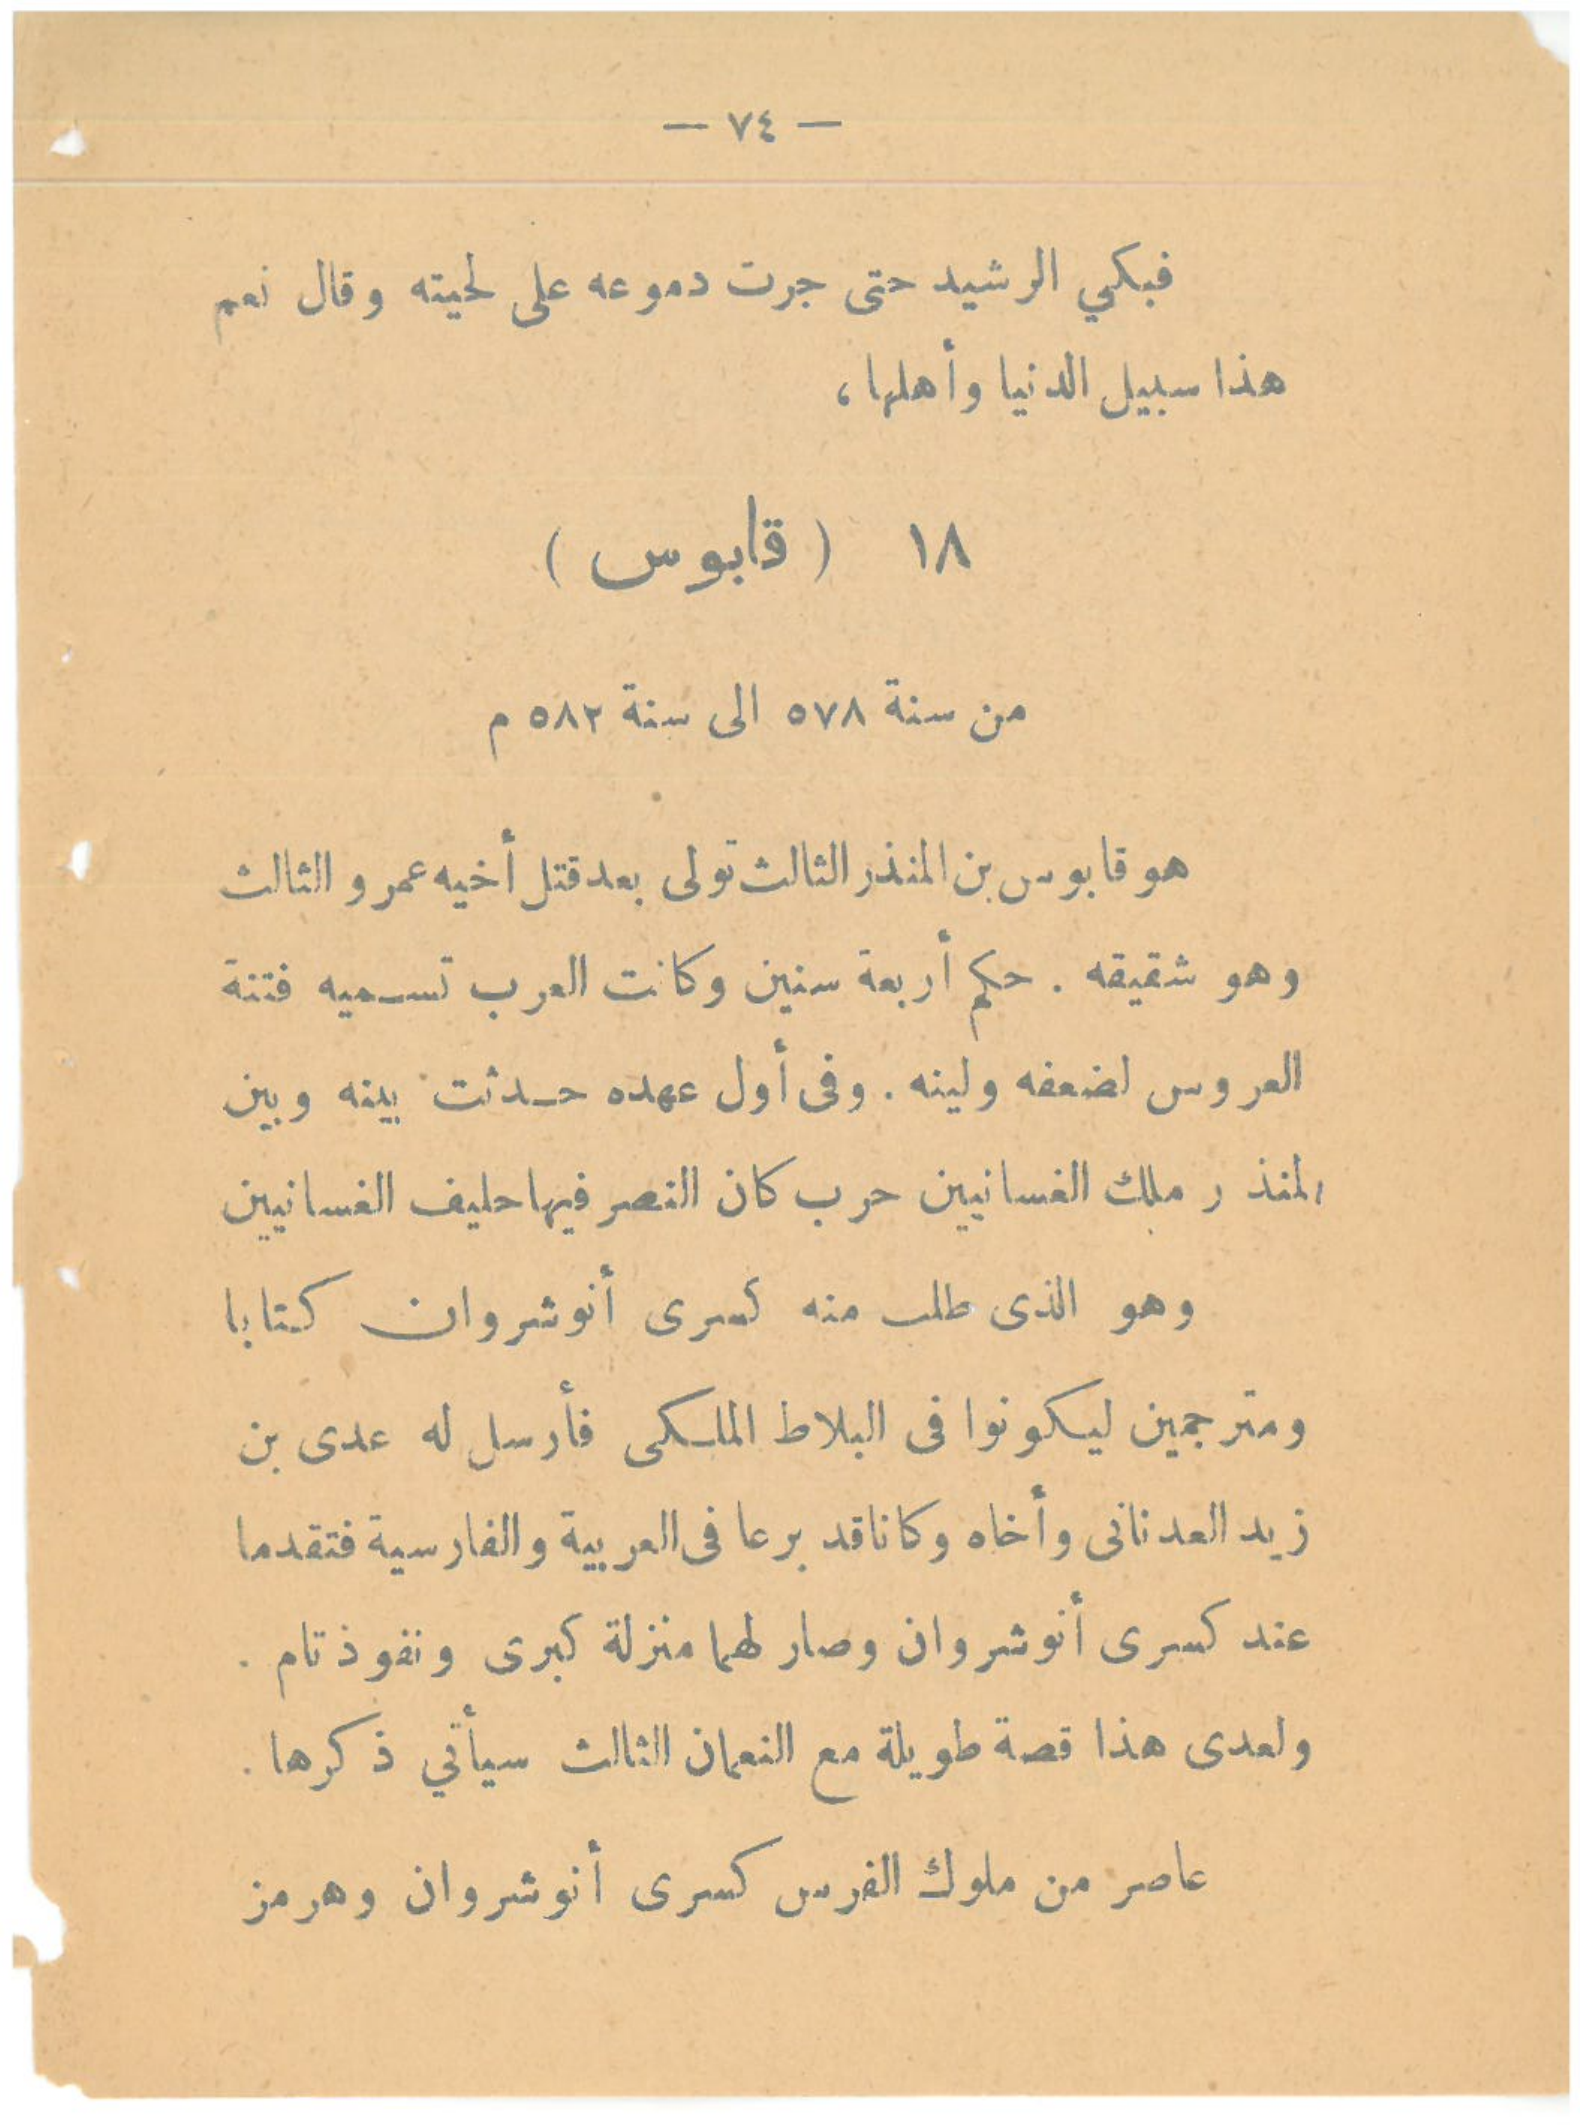 — ٧٤ —
فبكي الرشيد حتى جرت دموعه على لحيته وقال نعم
هذا سبيل الدنيا وأهلها،
١٨ ( قابوس )
من سنة ٥٧٨ الى سنة ٥٨٢ م
هو قابوس بن المنذر الثالث تولى بعد قتل أخيه عمرو الثالث
وهو شقيقه . حكم أربعة سنين وكانت العرب تسميه فتنة
العروس لضعفه ولينه . وفى أول عهده حدثت بينه وبين
المنذر ملك الغسانيين حرب كان النصر فيها حليف الغسانيين
وهو الذى طلب منه كسرى أنوشروان كتابا
ومترجمين ليكونوا فى البلاط الملكى فأرسل له عدى بن
زيد العدنانى وأخاه وكانا قد برعا فى العربية والفارسية فتقدما
عند كسرى أنوشروان وصار لهما منزلة كبرى ونفوذ تام .
ولعدى هذا قصة طويلة مع النعمان الثالث سيأتي ذكرها .
عاصر من ملوك الفرس كسرى أنوشروان وهرمز